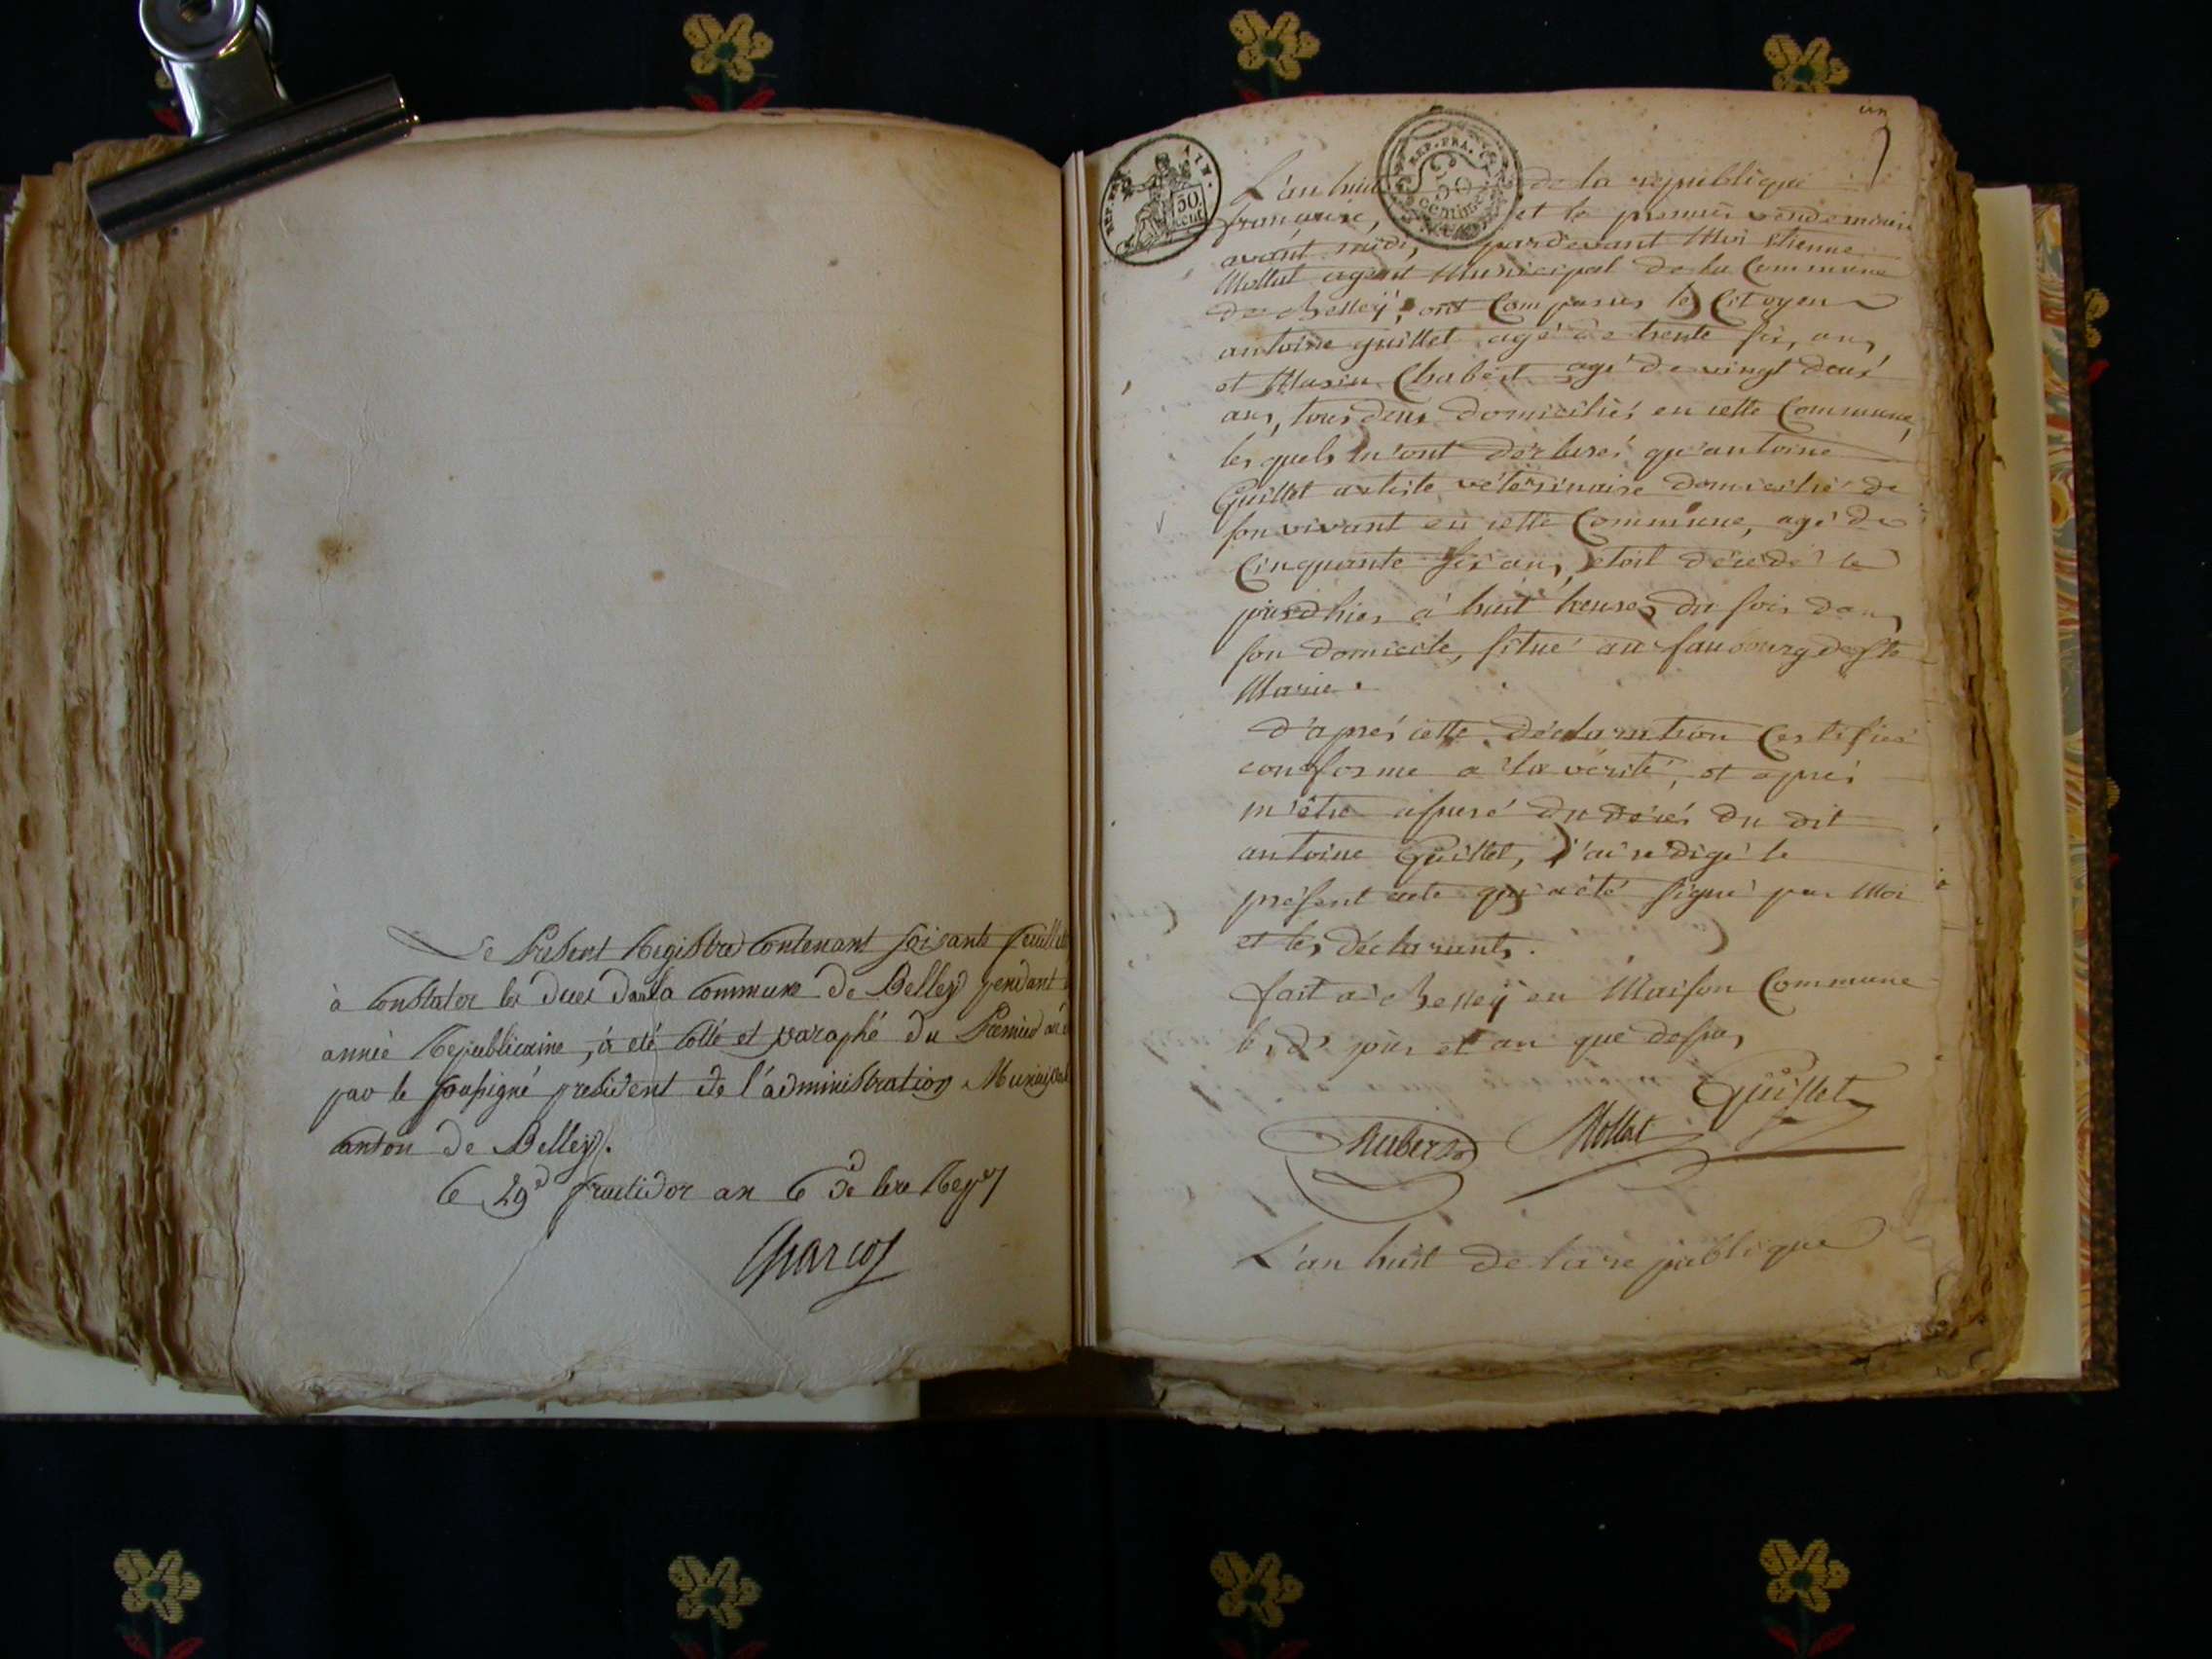 Le Présent Registre Contenant soixante feuillet
à Constater les décès dans la Commune de Belley pendant
année Républicaine, à été Cotté et paraphé du Premier au
par le soussigné président de l'administration Municipal
canton de Belley.
Le 29 fructidor an de l'ère
un
REP. FRA.
50 cent
AIN.
REP. FRA.
50
centimes
L'an huit de la république
française, et le premier vendemiaire
avant midi, pardevant Moi Etienne
Mollet agent Municipal de la Commune
de Belley, ont Comparus les Citoyens
antoine guillet agé de trente six ans
et Chabert agé de vingt deux
ans, tous deux domiciliés en cette Commune,
les quels m'ont déclaré qu'antoine
Guillet artiste vétérinaire domicilié de
son vivant en cette Commune, agé de
Cinquante six ans, etoit décédé le
jourd'hier à huit heures du soir dans
son domicile, situé au faubourg de Ste
Marie.
d'après cette déclaration Certifiée
conforme a la vérité, et après
m'être assuré du décés du dit
antoine Guillet, j'ai redigé le
présent acte qui a été signé par Moi
et les déclarants.
fait a Belley en Maison Commune
les d. jour et an que dessus
Guillet
Chabert Mollet
L'an huit de la republique